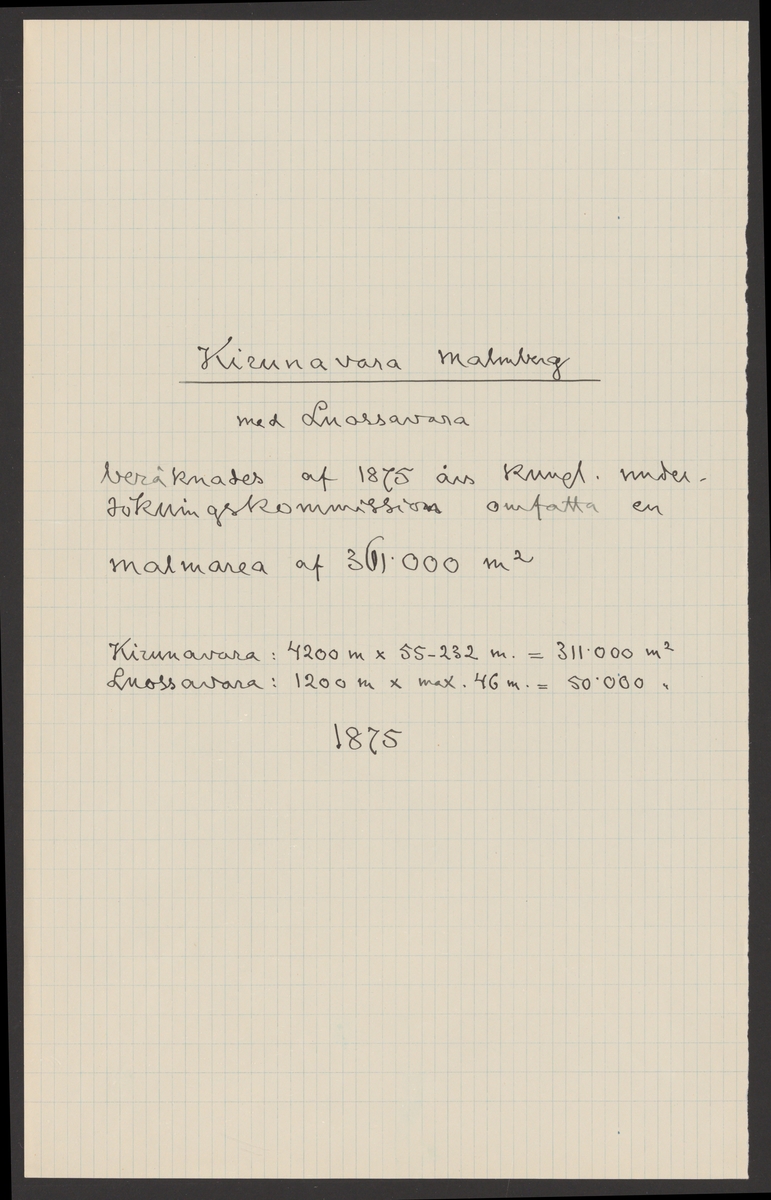 Kirunavara Malmberg
med Luossavara
beräknades af 1875 års Kungl. under-
sökningskommission omfatta en
malmarea af 361·000 m²
Kirunavara: 4200 m x 55-232 m. = 311·000 m²
Luossavara: 1200 m x max. 46 m. = 50·000 "
1875